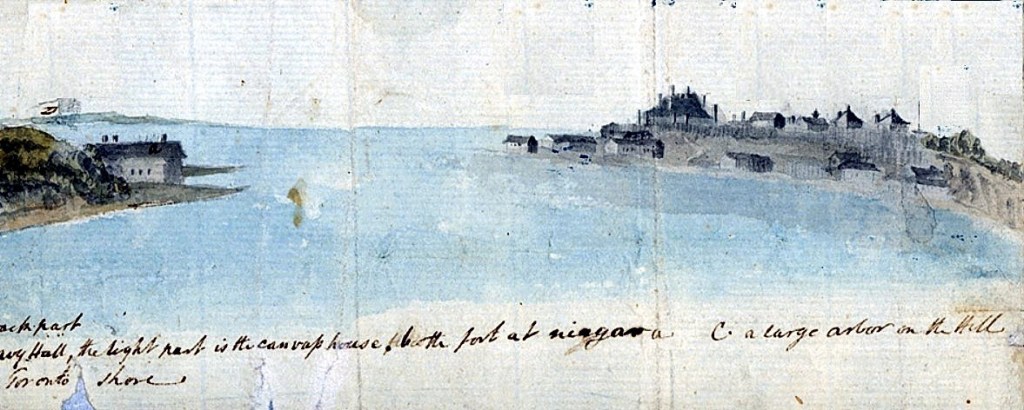 ack part
avy Hall, the light part is the canvass house, B. the fort at niagara C. a large arbor on the Hill
Toronto shore